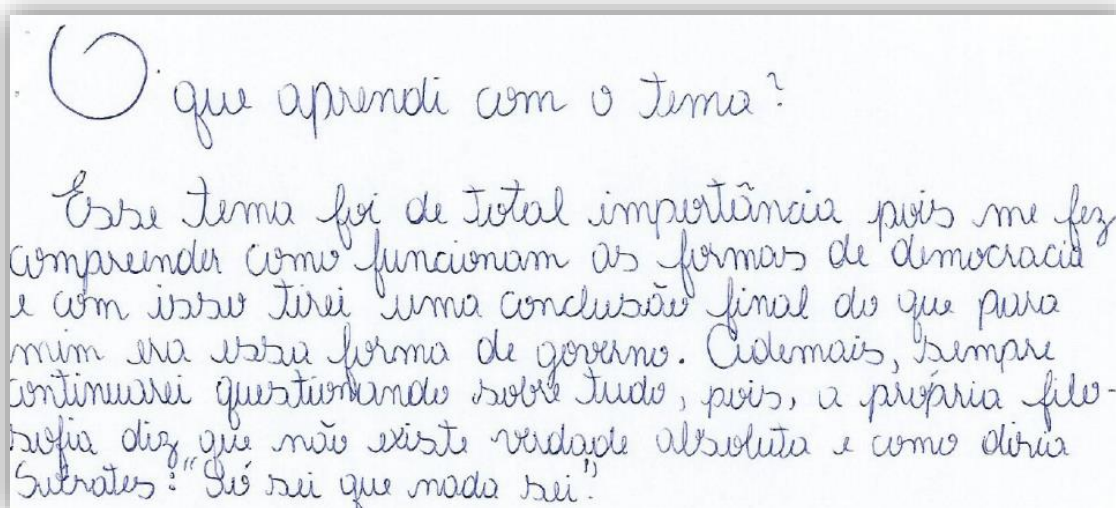 O que aprendi com o tema?
Esse tema foi de total importância pois me fez
compreender como funcionam as formas de democracia
e com isso tirei uma conclusão final do que para
mim era essa forma de governo. Ademais, sempre
continuarei questionando sobre tudo, pois, a própria filo-
sofia diz que não existe verdade absoluta e como diria
Sócrates: "Só sei que nada sei".